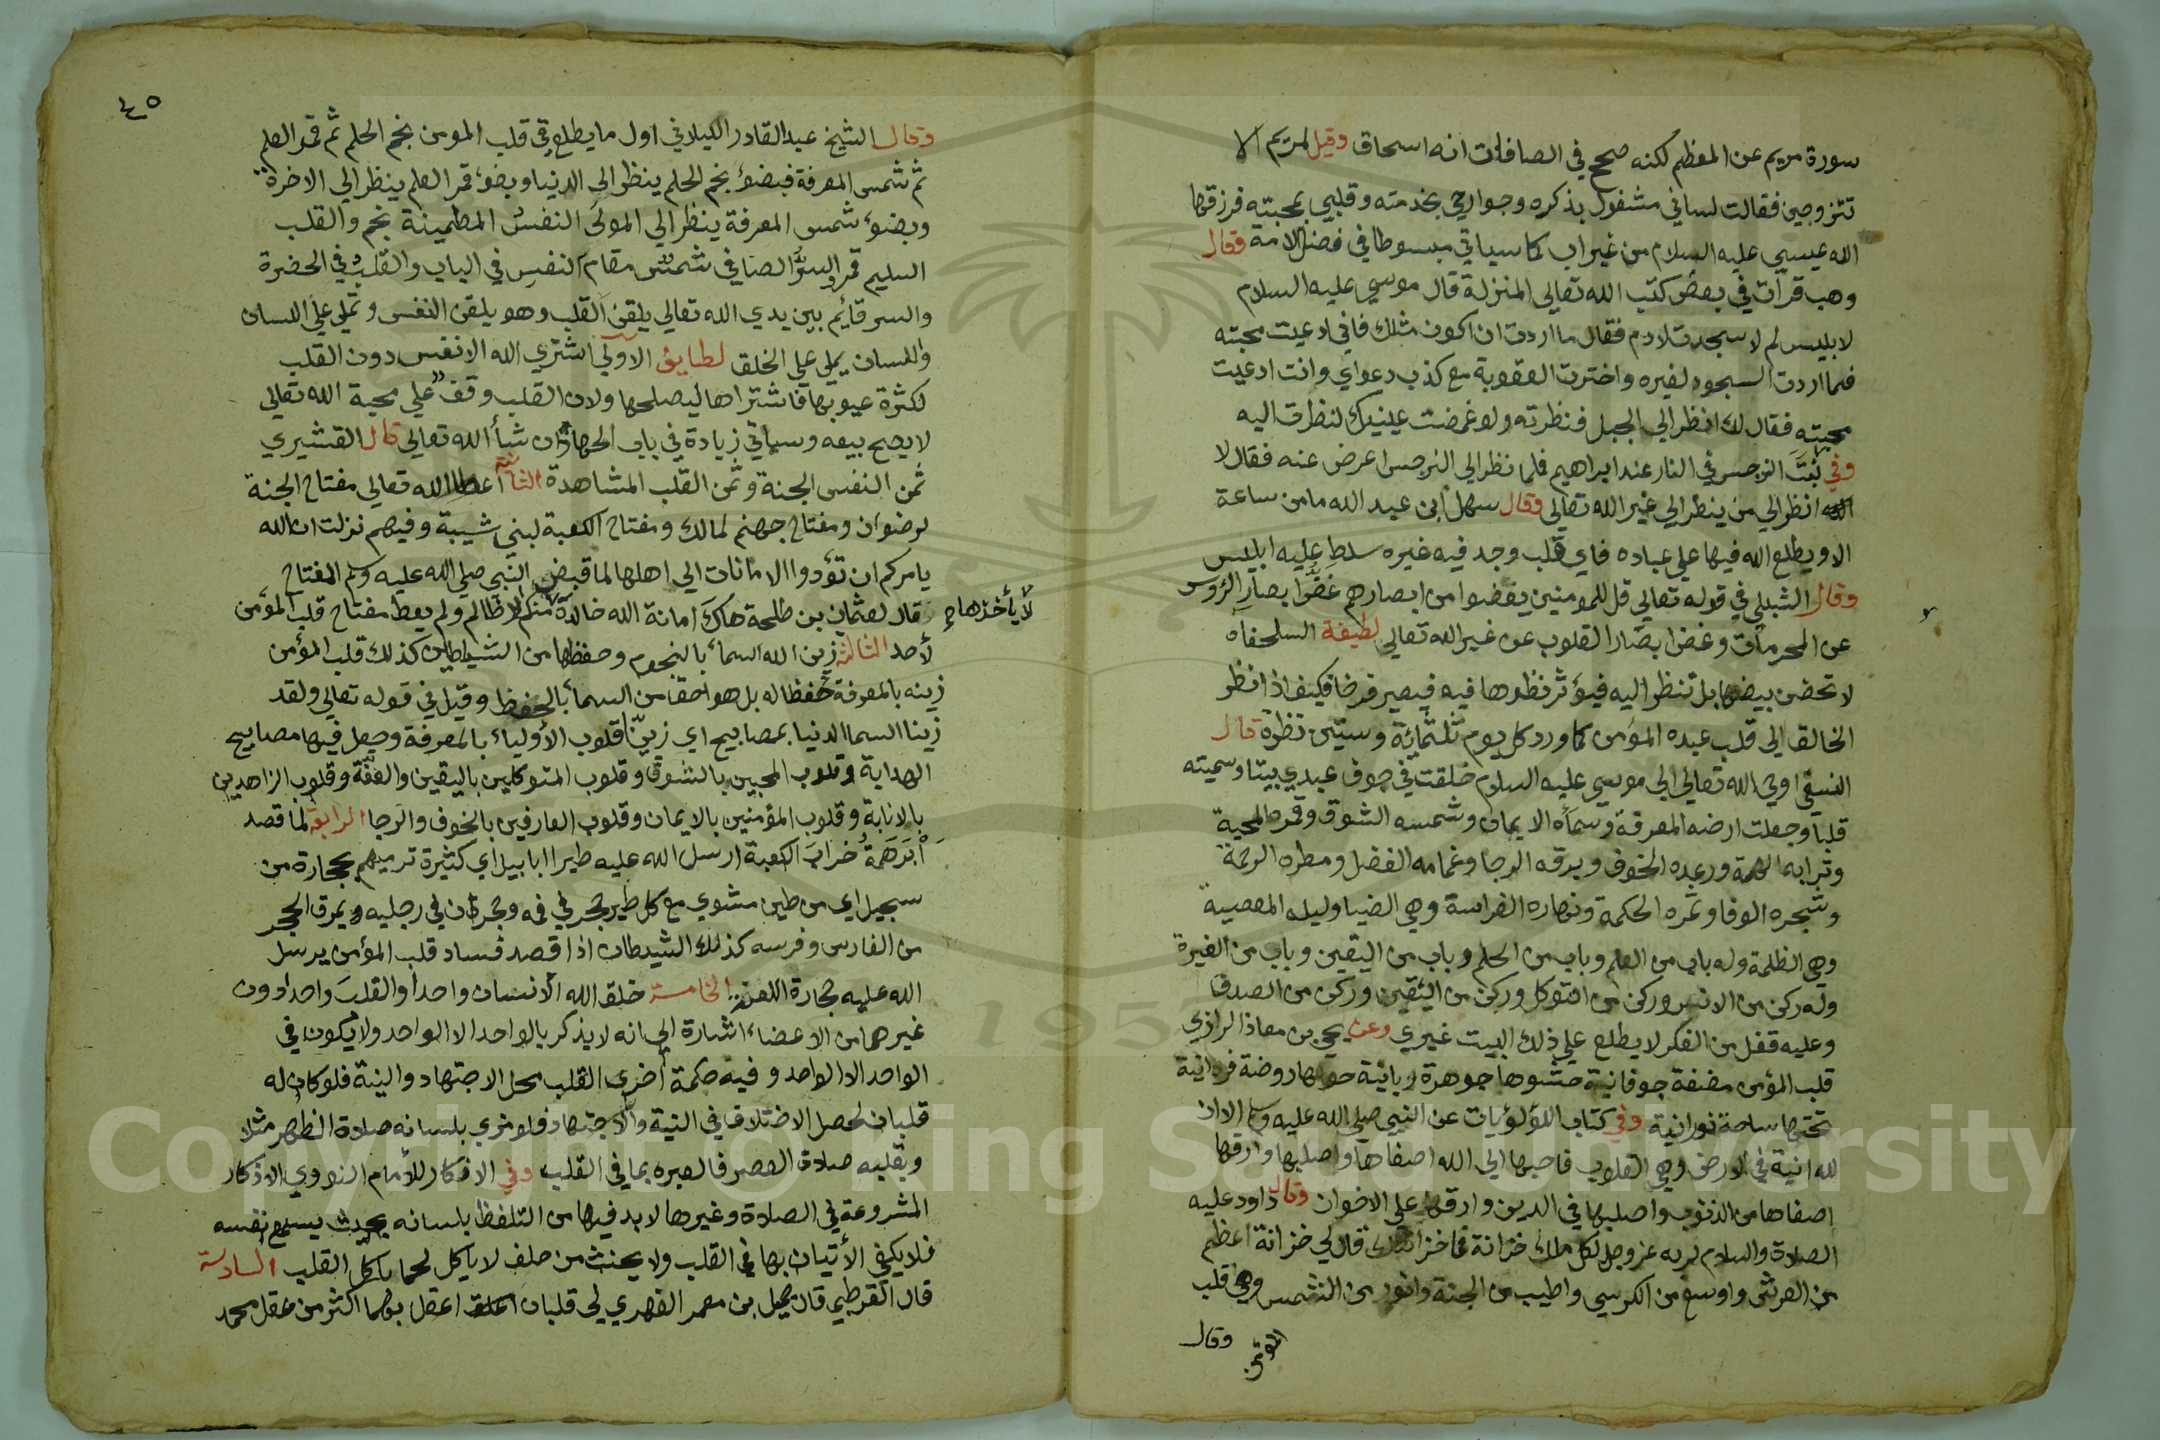 سورة مريم عن المعظم لكنه صحح في الصافات انه اسحاق وقيل لمريم الا
تتزوجين فقالت لساني مشغول بذكره وجوارحي بخدمته وقلبي بمحبته فرزقها
الله عيسي عليه السلام من غير اب كما سياتي مبسوطا في فضل الامة فقال
وهب قرات في بعض كتب الله تعالي المنزلة قال موسي عليه السلام
لابليس لم لا سجدت لادم فقال ما اردت ان اكون مثلك فاني ادعيت محبته
فما اردت السجود لغيره واخترت العقوبة مع كذب دعواي وانت ادعيت
محبته فقال لك انظر الي الجبل فنظرته ولو غمضت عينيك لنظرت اليه
وفي نبت النرجس في النار عند ابراهيم فلما نظر الي النرجس اعرض عنه فقال لا
انظر الي من ينظر الي غير الله تعالي وقال سهل ابن عبد الله ما من ساعة
الا ويطلع الله فيها علي عباده فاي قلب وجد فيه غيره سلط عليه ابليس
وقال الشبلي في قوله تعالي قل للمومنين يغضوا من ابصارهم غضوا بصار الرؤس
عن المحرمات وغض ابصار القلوب عن غير الله تعالي لطيفة السلحفاه
لا تحضن بيضها بل تنظر اليه فيؤثر نظرها فيه فيصير فرخا فكيف اذا نظر
الخالق الي قلب عبده المؤمن كما ورد كل يوم ثلثمائة وستين نظرة قال
النسفي اوحي الله تعالي الي موسي عليه السلام خلقت في جوف عبدي بيتا وسميته
قلبا وجعلت ارضه المعرفة وسماه الايمان وشمسه الشوق وقمره المحبة
وترابه الهمة ورعده الخوف وبرقه الرجا وغمامه الفضل ومطره الرحمة
وشجره الوفا وثمره الحكمة ونهاره الفراسة وهي الضيا وليله المعصية
وهي الظلمة وله باب من العلم وباب من الحلم وباب من اليقين وباب من الغيرة
وله ركن من الانس وركن من التوكل وركن من اليقين وركن من الصدق
وعليه قفل من الفكر لا يطلع علي ذلك البيت غيري وعن يحيي بن معاذ الرازي
قلب المؤمن مضغة جوفانية حشوها جوهرة ربانية حولها روضة فردانية
تحتها ساحة نورانية وفي كتاب اللؤلؤيات عن النبي صلي الله عليه وسلم الا ان
لله انية في الارض وهي القلوب فاحبها الي الله اصفاها واصلبها وارقها
اصفاها من الذنوب واصلبها في الدين وارقها علي الاخوان وقال داود عليه
الصلاة والسلام لربه عز وجل لكل ملك خزانة فما خزانتك قال لي خزانة اعظم
من العرش واوسع من الكرسي واطيب من الجنة وانور من الشمس وهي قلب
المؤمن
وقال
٤٥
وقال الشيخ عبد القادر الكيلاني اول ما يطلع في قلب المومن نجم الحلم ثم قمر العلم
ثم شمس المعرفة فبضوء نجم الحلم ينظر الي الدنيا وبضوء قمر العلم ينظر الي الاخرة
وبضوء شمس المعرفة ينظر الي المولي النفس المطمينة نجم والقلب
السليم قمر والسر الصافي شمس مقام النفس في الباب والقلب في الحضرة
والسر قائم بين يدي الله تعالي يلقن القلب وهو يلقن النفس وتملي علي اللسان
واللسان يملي علي الخلق لطايف الاولي اشتري الله الانفس دون القلب
لكثرة عيوبها فاشتراها ليصلحها ولان القلب وقف علي محبة الله تعالي
لا يصح بيعه وسياتي زيادة في باب الجهاد ان شأ الله تعالي قال القشيري
ثمن النفس الجنة وثمن القلب المشاهدة الثانية اعطا الله تعالي مفتاح الجنة
لرضوان ومفتاح جهنم لمالك ومفتاح الكعبة لبني شيبة وفيهم نزلت ان الله
يامركم ان تؤدوا الامانات الي اهلها لما قبض النبي صلي الله عليه وسلم المفتاح
قال لعثمان بن طلحة هاك امانة الله خالدة منكم الا ظالم ولم يعط مفتاح قلب المؤمن
لا يأخذها
لأحد الثالثة زين الله السماء بالنجوم وحفظها من الشياطين كذلك قلب المؤمن
زينه بالمعرفة حفظا له بل هو احق من السماء بالحفظ وقيل في قوله تعالي ولقد
زينا السما الدنيا بمصابيح اي زينا قلوب الأولياء بالمعرفة وجعل فيها مصابيح
الهداية وقلوب المحبين بالشوق وقلوب المتوكلين باليقين والثقة وقلوب الزاهدين
بالانابة وقلوب المؤمنين بالايمان وقلوب العارفين بالخوف والرجا الرابعة لما قصد
أبرهمة خراب الكعبة ارسل الله عليه طيرا ابابيل اي كثيرة ترميهم بحجارة من
سجيل اي من طين مشوي مع كل طير حجر في فمه وحجران في رجليه ويمرق الحجر
من الفارس وفرسه كذلك الشيطان اذا قصد فساد قلب المؤمن يرسل
الله عليه حجارة اللعنة الخامسة خلق الله الانسان واحدا والقلب واحدا دون
غيرهما من الاعضاء اشارة الي انه لا يذكر بالواحد الا الواحد ولا يكون في
الواحد الا الواحد وفيه حكمة أخري القلب محل الاجتهاد والنية فلو كان له
قلبان لحصل الاختلاف في النية والاجتهاد فلو نوي بلسانه صلاة الظهر مثلا
وبقلبه صلاة العصر فالعبره بما في القلب وفي الاذكار للأمام النووي الاذكار
المشروعة في الصلاة وغيرها لا بد فيها من التلفظ بلسانه بحيث يسمع نفسه
فلا يكفي الأتيان بها في القلب ولا يحنث من حلف لا ياكل لحما باكل القلب السادسة
قال القرطبي قال جميل بن معمر الفهري لي قلبان اعقل بهما اكثر من عقل محمد